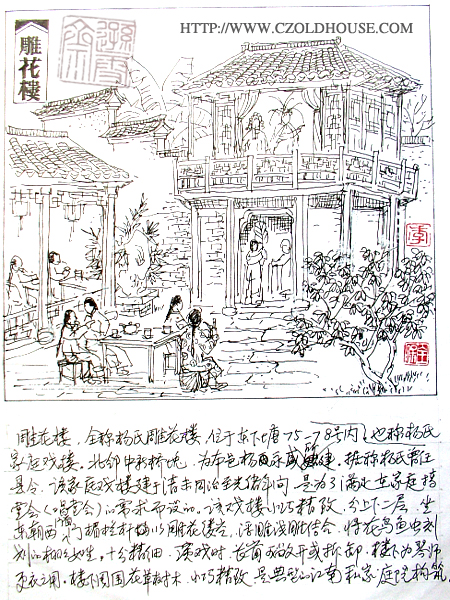 HTTP://WWW.CZOLDHOUSE.COM
雕花楼
李
雕花楼,全称杨氏雕花楼,位于东下塘75—78号内,也称杨氏
家庭戏楼。北邻中新桥堍,为布邑杨永盛所建,据称杨氏曾任
县令。该家庭戏楼建于清末同治至光绪年间,是为了满足在家庭
堂会(唱堂会)的需求而设的。该戏楼小巧精致,分上下二层,坐
东朝西,门楣栏杆饰以雕花镂空,浮雕浅雕结合,将花鸟鱼虫刻
划的栩栩如生,十分精细。演戏时,长窗可敞开或拆卸。楼下为琴师
更衣之用。楼下周围花草树木,小巧精致,是典型的江南私家庭院构筑。